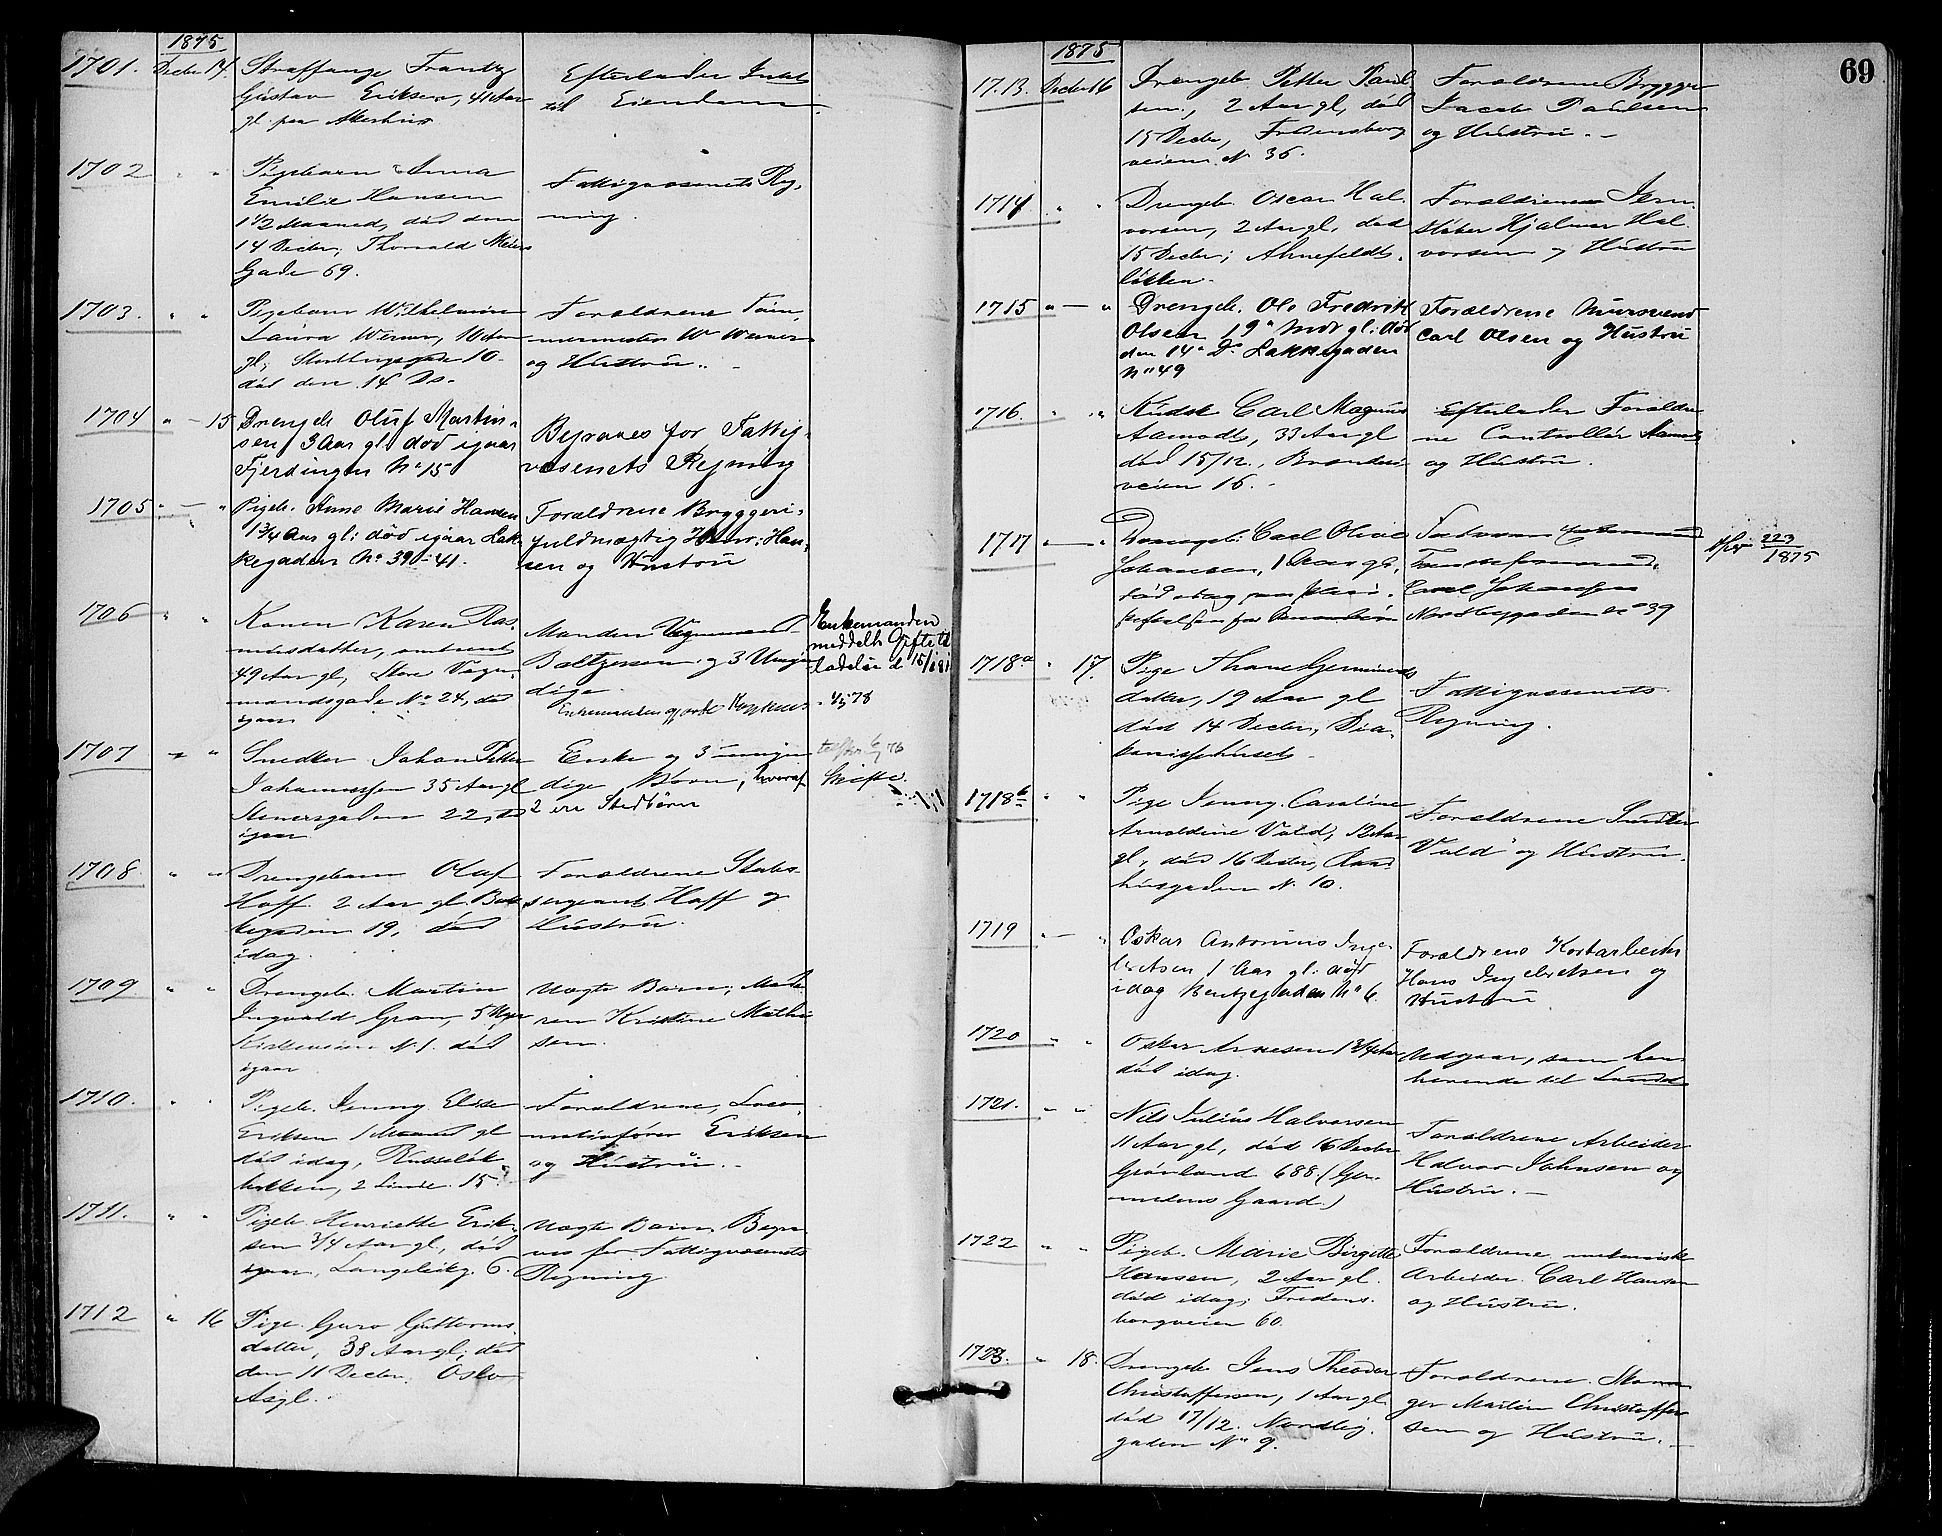 1875
1701. Decbr 14. Straffange Frantz
Gustav Eriksen, 41 Aar
gl. paa Akershus
Efterlader Intet
til Eiendom
1702 " " Pigebarn Anna
Emilie Hansen
1 1/2 Maaned, død den
14 Decbr, Thorvald Meiers
Gade 69.
Fattigvæsenets Reg-
ning.
1703. " " Pigebarn Wilhelmine
Laura Werner, 10 Aar
gl, Storthingsgade 10.
død den 14 Ds.
Forældrene Tøm-
mermester W Werner
og Hustru.
1704 " - 15 Drengeb Oluf Martin-
sen 3 Aar gl. død igaar
Fjerdingen No 15
Begraves for Fattig-
væsenets Regning
1705 " - " Pigeb. Anne Marie Hansen
1 3/4 Aar gl: død igaar Lak-
kegaden No 39 - 41.
Forældrene Bryggeri-
fuldmægtig Han-
sen og Hustru
1706 " " Konen Karen Ras-
musdatter, omtrent
49 Aar gl, Store Vogn-
mandsgade No 24, død
igaar
Manden Vognmand
Baltzersen og 3 Umyn-
dige.
Enkemanden
meddelt Gifte til
ladelse d 15/1 81
1707 " " Snedker Johan Petter
Johannessen 35 Aar gl
Stenersgaden 22, død
igaar
Enke og 3 umyn-
dige Børn, hvoraf
2 ere Stedbørn
Skifte.
1708. " " Drengebarn Olaf
Hoff 2 Aar gl. Bak-
kegaden 19, død
idag.
Forældrene Stabs-
sergeant Hoff og
Hustru.
1709 " " Drengeb. Martin
Ingvald Gran, 5 Uger
Kirkeveien N. 1. død
igaar
Uægte Barn; Mode-
ren Kristine Mathi-
sen.
1710. " " Pigeb. Jenny Elise
Eriksen 1 Maaned gl
død idag, Russeløk-
bakken, 2 Linde 15
Forældrene, Loco-
motivfører Eriksen
og Hustru.
1711. " " Pigeb. Henriette Erik-
sen 3/4 Aar gl., død
igaar, Langeleikg. 6.
Uægte Barn, Begra-
ves for Fattigvæsenets
Regning
1712 " 16 Pige Guro Guttorms-
datter, 38 Aar gl, død
den 11 Decbr. Oslo
Asyl.
69
1875
1713. Decbr 16 Drengeb. Petter Paul-
sen, 2 Aar gl, død
15 Decbr, Fredensborg
veien N 36.
Forældrene Brygger
Jacob Paulsen
og Hustru. -
1714 " " Drengeb. Oscar Hal-
vorsen, 2 Aar gl. død
15 Decbr; Ahnefeldts-
løkken.
Forældrene Jern-
støber Hjalmar Hal-
vorsen og Hustru
1715 " - " Drengeb. Ole Fredrik
Olsen 19 Mdr gl: død
den 14 Ds Lakkegaden
No 49
Forældrene Muursvend
Carl Olsen og Hustru
1716. " " Kudsk Carl Magnus
Aamodt, 33 Aar gl
død 15/12., Brænderi-
veien 16. -
Efterlader Forældre-
ne Controllør Aamodt
og Hustru.
1717 " - " Drengeb. Carl Oliver
Johansen, 1 Aar gl.
Carl Johansen
Nordbygaden No 39
223
1875
1718a " 17. Pige
datter, 19 Aar gl
død 14 Decbr, Dia-
konissehuset
Fattigvæsenets
Regning.
1718b " " Pige Jenny Caroline
Arnoldine Vold, 12 Aar
gl, død 16 Decbr, Raad-
husgaden N. 10.
Forældrene Snedker
Vold og Hustru.
1719 " - " Oskar Antonius Inge-
bretsen 1 Aar gl. død
idag Bentzegaden No 6.
Forældrene Kortarbeider
Hans Ingebretsen og
Hustru
1720 " " Oskar Arnesen 1 3/4 Aar
død idag.
Udgaar, som hen-
hørende til Landet
1721. " " Nils Julius Halvorsen
11 Aar gl, død 16 Decbr
Grønland 688 (
Gaard.)
Forældrene Arbeider
Halvor Johnsen og
Hustru. -
1722 " " Pigeb. Marie Birgitte
Hansen, 2 Aar gl.
død idag; Fredens-
borgveien 60.
Forældrene, mekaniske
Arbeider Carl Hansen
og Hustru.
1723. " 18. Drengeb Jens Theodor
Christoffersen, 1 Aar gl
død 17/12. Nordby-
gaden No 9.
Forældrene
Martin Christoffer-
sen og Hustru. -